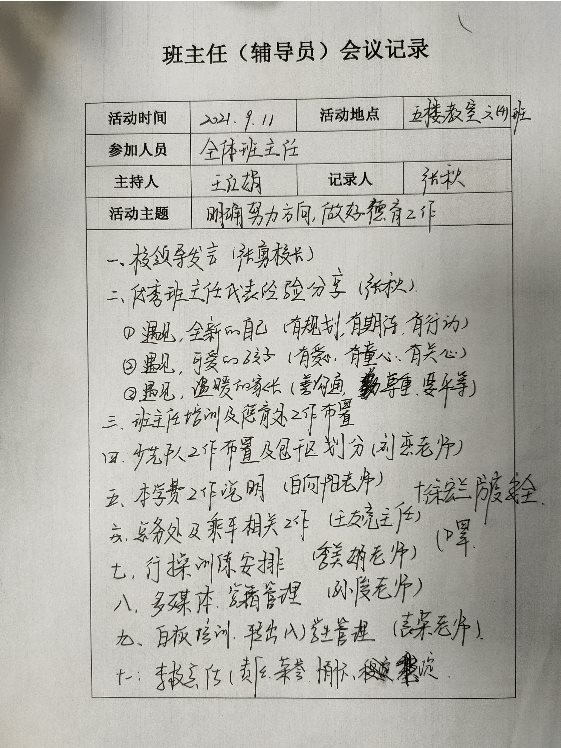 班主任（辅导员）会议记录
活动时间 2021.9.11 活动地点 五楼教室六(4)班
参加人员 全体班主任
主持人 王娟 记录人 张秋
活动主题 明确努力方向,做好德育工作
一、校领导发言 (张勇校长)
二、优秀班主任代表经验分享 (张秋)
①遇见,全新的自己 (有规划,有期待,有行动)
②遇见,可爱的孩子 (有爱心,有童心,有关心)
③遇见,温暖的家长 (善沟通,尊重,要平等)
三、班主任培训及德育处工作布置
四、少先队工作布置及包干区划分 (刘恋老师)
五、本学费工作说明 (白向阳老师)
六、总务处及乘车相关工作 (主任)
七、行操训练安排 (老师)
八、多媒体、管理 (孙俊老师)
九、白板培训、学生管理 (老师)
十、安全
十一、李校 (责任、荣誉、